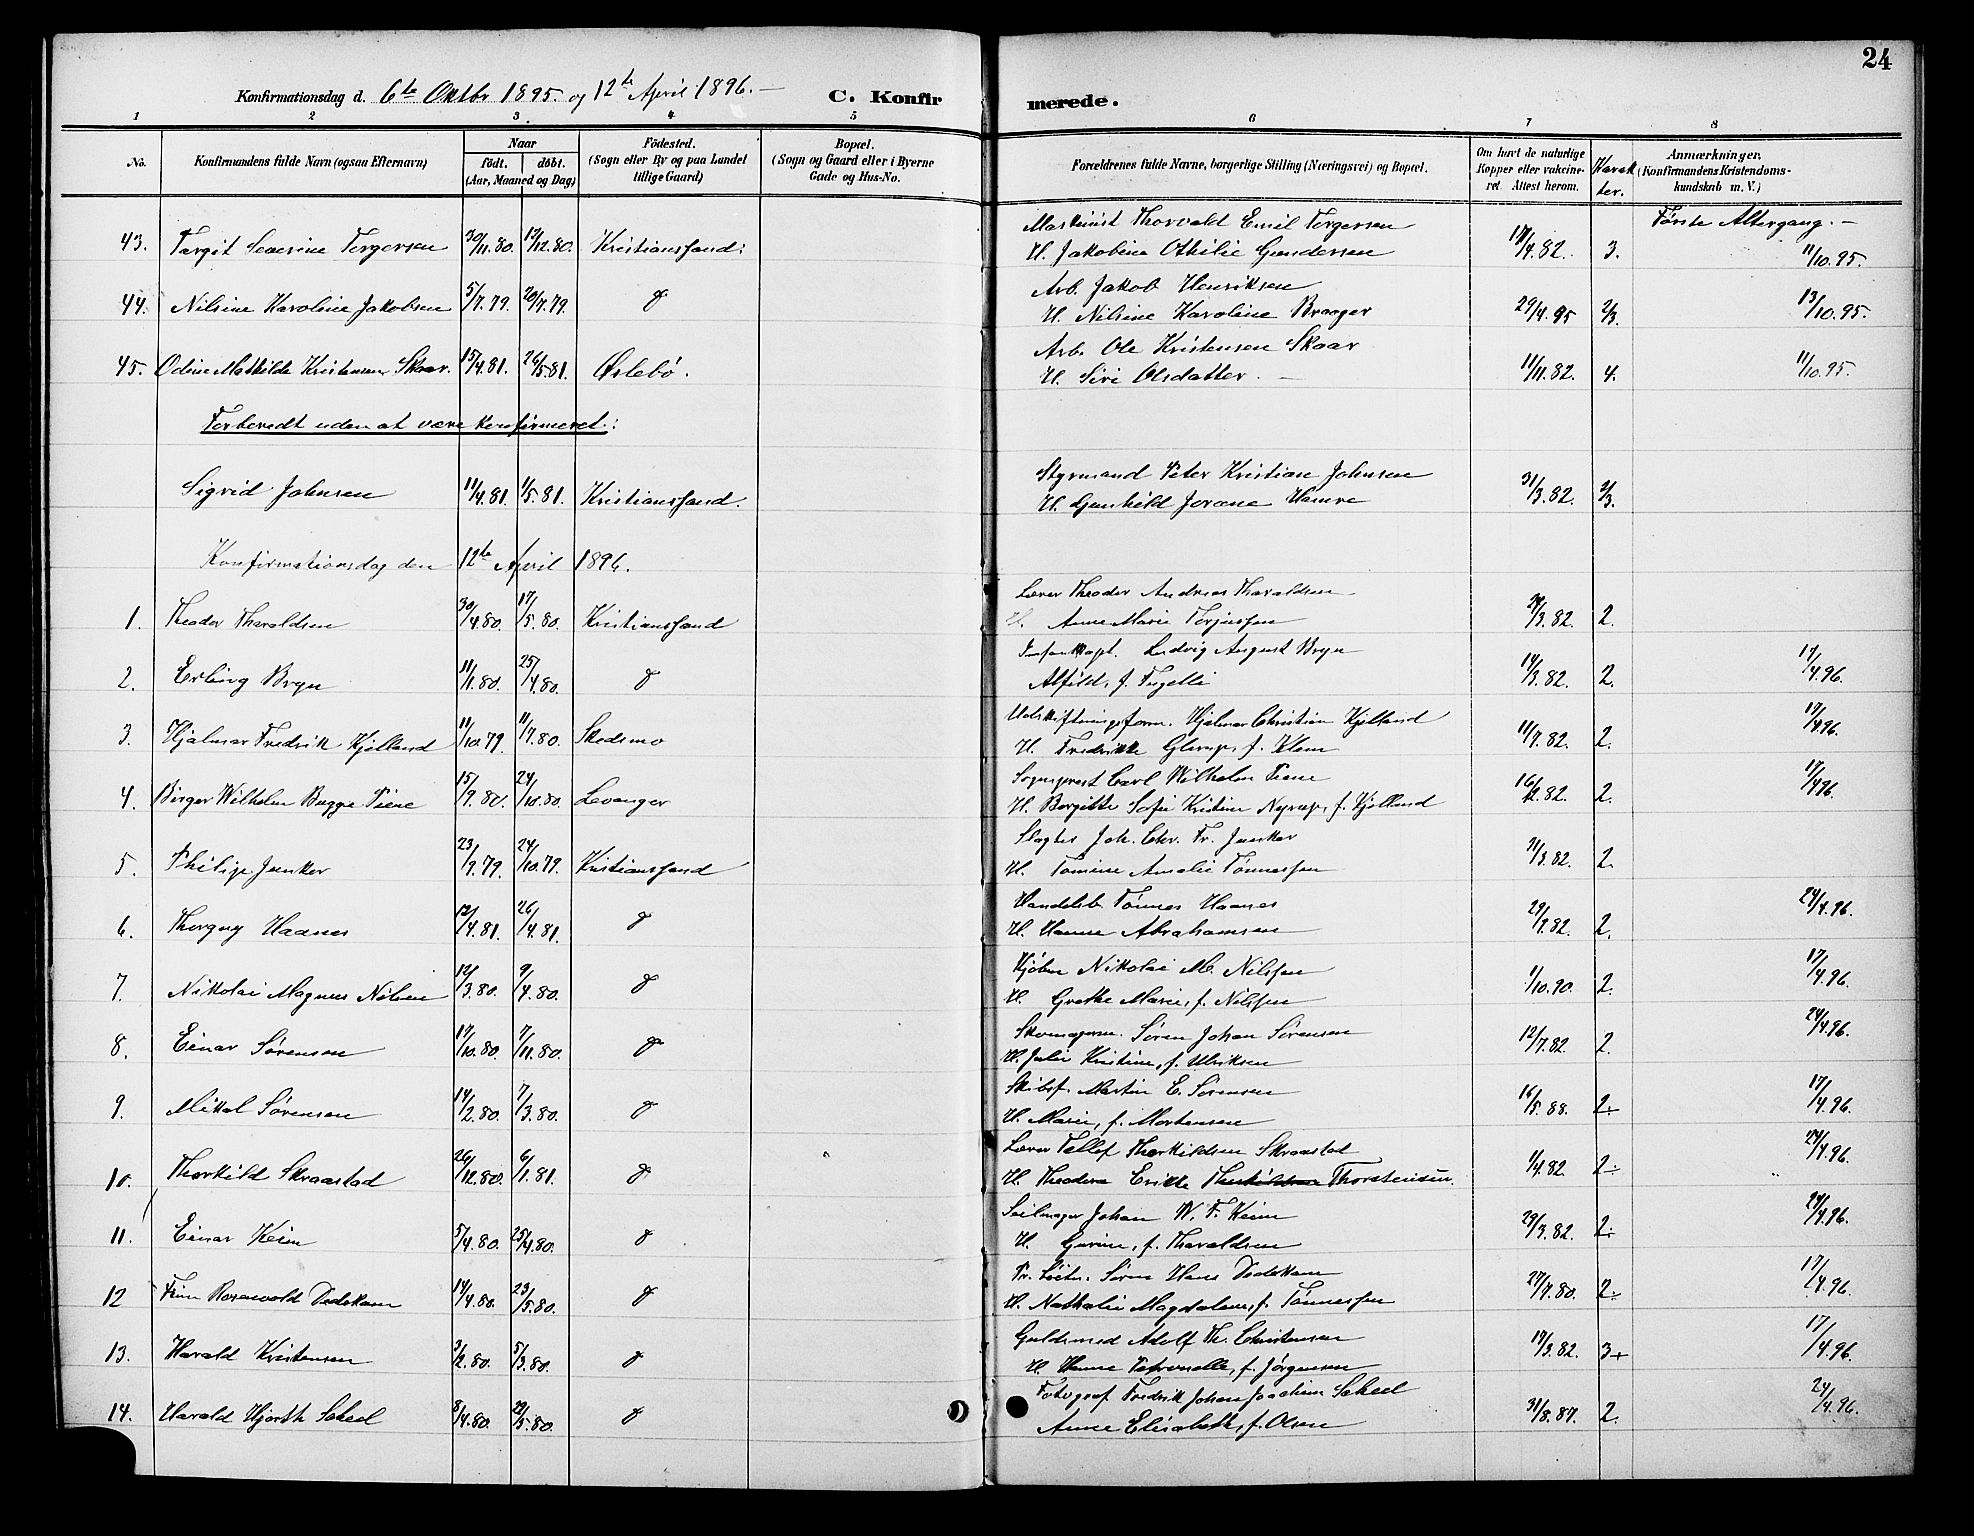 24
Konfirmationsdag d. 6te Oktbr 1895. og 12te April 1896. — C. Konfirmerede.
1 2 3 4 5 6 7 8
No. Konfirmandens fulde Navn (ogsaa Efternavn) Naar födt. döbt. (Aar, Maaned og Dag) Födested. (Sogn eller By og paa Landet tillige Gaard) Bopæl. (Sogn og Gaard eller i Byerne Gade og Hus-No. Forældrenes fulde Navne, borgerlige Stilling (Næringsvei) og Bopæl. Om havt de naturlige Kopper eller vaccineret. Attest herom. Karakter. Anmærkninger, (Konfirmandens Kristendomskundskab m. V.)
Første Altergang. —
43. Targit Severine Torgersen 30/11.80. 13/12.80. Kristianssand: Maskinist Thorvald Emil Torgersen
H. Jakobine Othilie Gundersen 17/4.82. 3. 11/10.95.
44. Nilsine Karoline Jakobsen 5/7.79. 20/7.79. d Arb. Jakob Henriksen
H. Nilsine Karoline Braager 29/4.95 2/3. 13/10.95.
45. Odine Mathilde Kristensen Skaar. 15/4.81. 26/5.81. Øslebö. Arb. Ole Kristensen Skaar
H. Siri Olsdatter. — 11/11.82. 4. 11/10.95.
Forberedt uden at være konfirmeret.:
Sigrid Johnsen 11/4.81. 1/5.81. Kristianssand. Styrmand Peter Kristian Johnsen
H. Gunhild Jorane Hamre 31/3.82. 2/3.
Konfirmationsdag den 12te April 1896.
1. Theodor Tharaldsen 30/4.80. 17/5.80. Kristianssand Lærer Theodor Andreas Tharaldsen
H. Anne Marie Torjussen 29/3.82. 2.
2. Erling Bryn 11/1.80. 25/4.80. d Ludvig August Bryn
Alfild, f. Fugelli 14/3.82. 2. 17/4.96.
3. Hjalmar Fredrik Kjelland 11/10.79. 11/7.80. Skedsmo Udskiftningsform. Hjalmar Christian Kjelland
H. Fredrikke Glerup, f. Klem 11/7.82. 2. 17/4.96.
4. Birger Wilhelm Bugge Tiene 15/9.80. 24/10.80. Levanger Sogneprest Carl Wilhelm Tiene
H. Bergitte Sofie Kristine Nyrup, f. Kjelland 16/12.82. 2. 17/4.96.
5. Philip Junker 23/9.79. 24/10.79. Kristianssand Slagter Joh. Chr. Fr. Junker
H. Tomine Amalie Tønnessen 31/3.82. 2.
6. Thorguy Haanes 12/4.81. 26/4.81. d Handelsb. Tønnes Haanes
H. Hanne Abrahamsen 29/7.82. 2. 24/4.96.
7. Nikolai Magnus Nilsen 12/3.80. 9/4.80. d Kjøbm Nikolai M. Nilssen
H. Grethe Marie, f. Nilssen 1/10.90. 2. 17/4.96.
8. Einar Sørensen 17/10.80. 7/11.80. d Skomagerm. Søren Johan Sørensen
H. Julie Kristine, f. Ulriksen 12/7.82. 2. 24/4.96.
9. Mikal Sørensen 14/2.80. 7/3.80. d Skibsf. Martin E. Sørensen
H. Marie, f. Mortensen 16/5.88. 2÷ 17/4.96.
10. Thorkild Skraastad 26/12.80. 6/1.81. d Lærer Tellef Thorkildsen Skraastad
H. Theodora Erikke Thorkildsen Thorstensen. 1/4.82. 2÷ 24/4.96.
11. Einar Keim 5/4.80. 25/4.80. d Seilmager Johan W. F. Keim
H. Gurine, f. Tharaldsen 29/3.82. 2÷ 24/4.96.
12 Finn Rosenvold Dedekam 14/4.80. 23/5.80. d Pr. Løitn. Søren Hans Dedekam
H. Nathalie Magdalene, f. Tønnessen 27/7.80. 2÷ 17/4.96.
13. Harald Kristensen 3/2.80. 5/3.80. d Guldsmed Adolf Th. Christensen
H. Hanne Petronelle, f. Jørgensen 17/3.82. 3+ 17/4.96.
14. Harald Hjorth Scheel 8/4.80. 22/5.80. d Fotograf Fredrik Johan Joachim Scheel
Anne Elisabeth, f. Olsen 31/8.87. 2. 24/4.96.